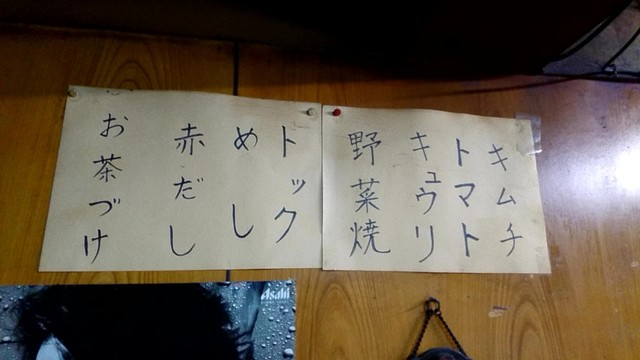 キムチ
トマト
キュウリ
野菜焼
トック
めし
赤だし
お茶づけ
Asahi